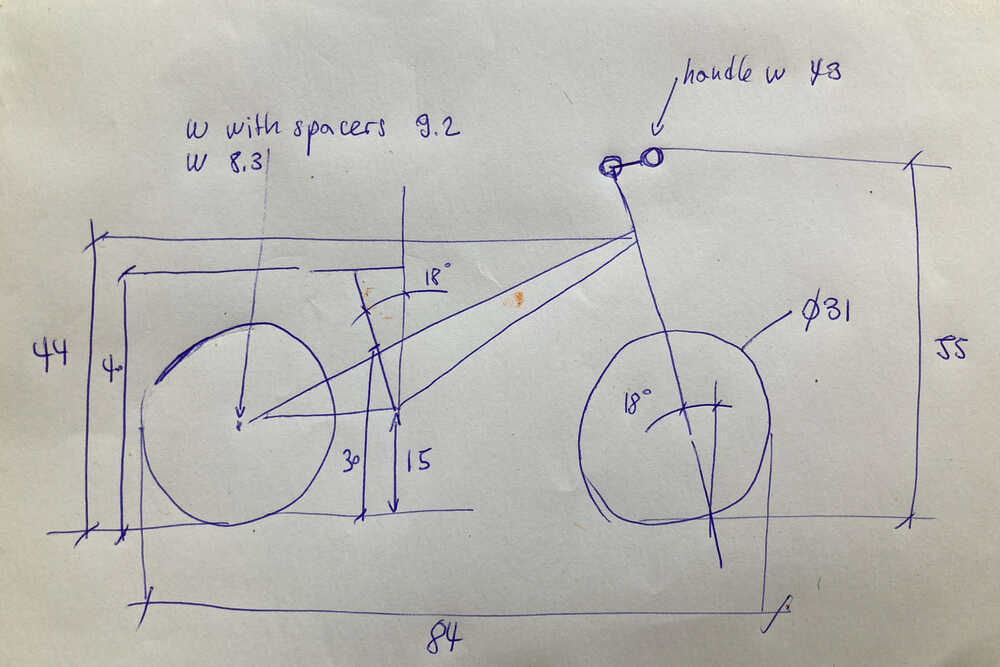 handle w 43
w with spacers 9.2
w 8.3
18°
ø31
44
40
55
18°
30
15
84